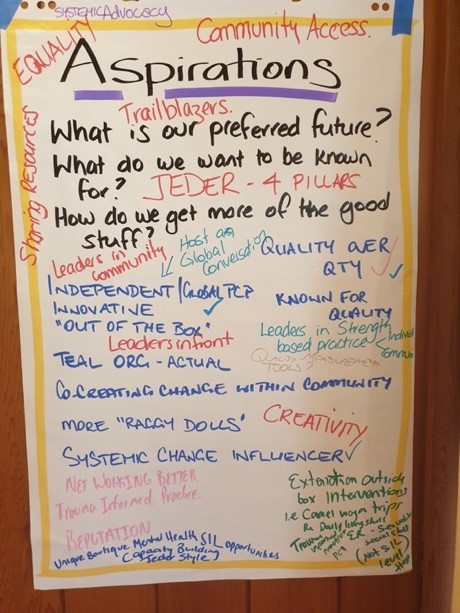 SYSTEMIC Advocacy
Community Access.
EQUALITY
Aspirations
Sharing Resources
Trailblazers.
What is our preferred future?
What do we want to be known
for? JEDER - 4 PILLARS
How do we get more of the good
stuff?
Leaders in
community
Host a
Global
Conversation
QUALITY OVER
QTY
INDEPENDENT/GLOBAL PCP
INNOVATIVE
"OUT OF THE BOX"
KNOWN FOR
QUALITY
Leaders in front
Leaders in Strength
based practice
TEAL ORG - ACTUAL
QUALITY MEASUREMENT
TOOLS?
CO-CREATING CHANGE WITHIN COMMUNITY
MORE "RAGGY DOLLS"
CREATIVITY
SYSTEMIC CHANGE INFLUENCER
NETWORKING BETTER
Trauma Informed Practice.
REPUTATION
Unique Boutique Mental Health SIL opportunities
(Capacity Building
Jeder Style)
Extention outside
box Interventions
i.e Camel wagon trips
Daily living skills
(Not SIL)
level